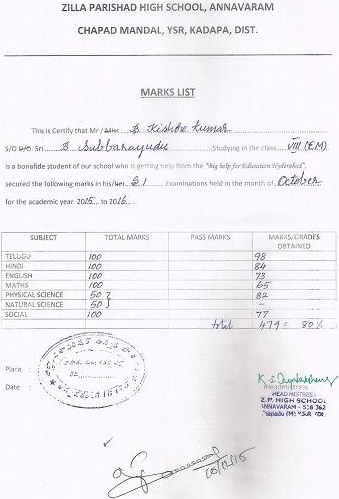 ZILLA PARISHAD HIGH SCHOOL, ANNAVARAM
CHAPAD MANDAL, YSR, KADAPA, DIST.
MARKS LIST
This is Certify that Mr /Miss B. Kishore kumar
S/O D/O Sri B Subbarayudu Studying in the class VIII (E.M)
is a bonafide student of our school who is getting help from the "Big help for Education Hyderabad",
secured the following marks in his/her S 1 Examinations held in the month of October
for the academic year 2015 to 2016
SUBJECT TOTAL MARKS PASS MARKS MARKS/GRADES OBTAINED
TELUGU 100 98
HINDI 100 84
ENGLISH 100 73
MATHS 100 65
PHYSICAL SCIENCE 50 82
NATURAL SCIENCE 50 -
SOCIAL 100 77
total 479 = 80%
Place :
Date :
Headmistress
HEAD MISTRESS
Z.P. HIGH SCHOOL
ANNAVARAM - 516 362